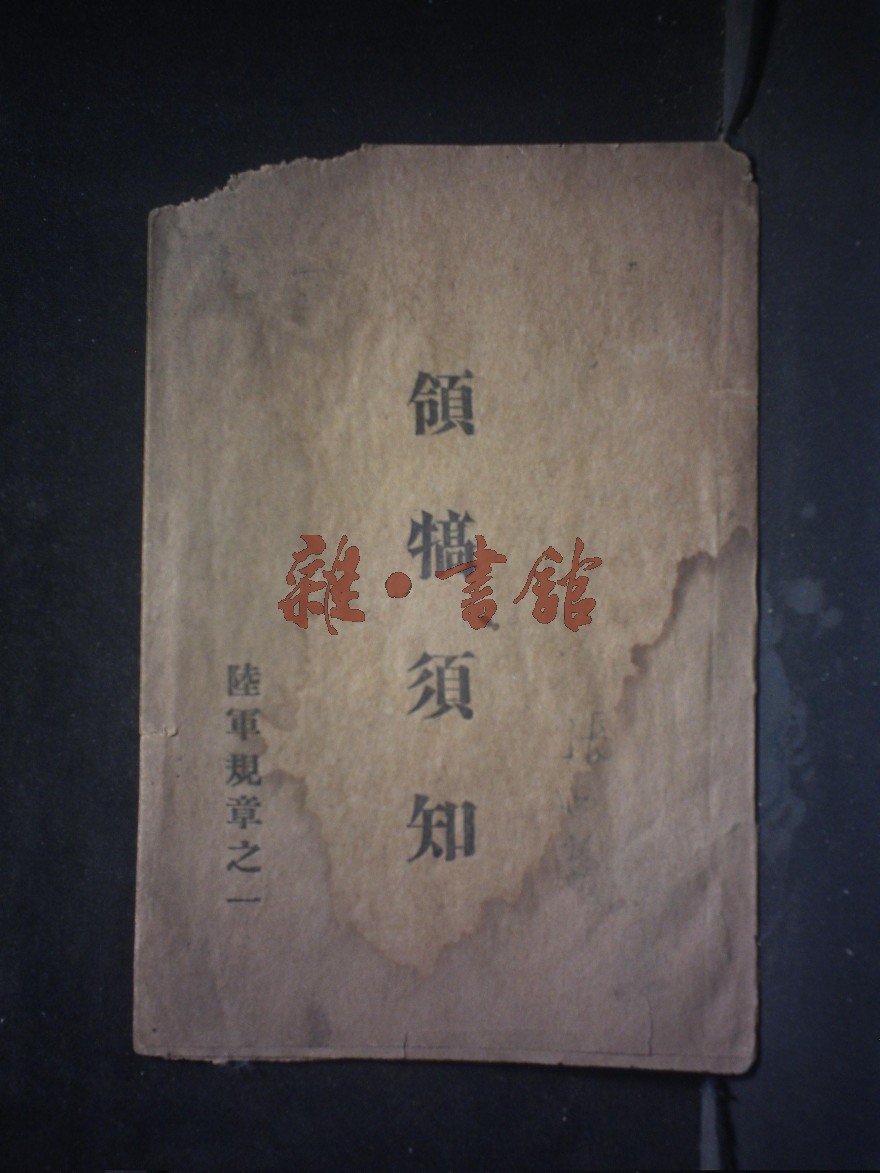 領犒須知
陸軍規章之一
雜·書館